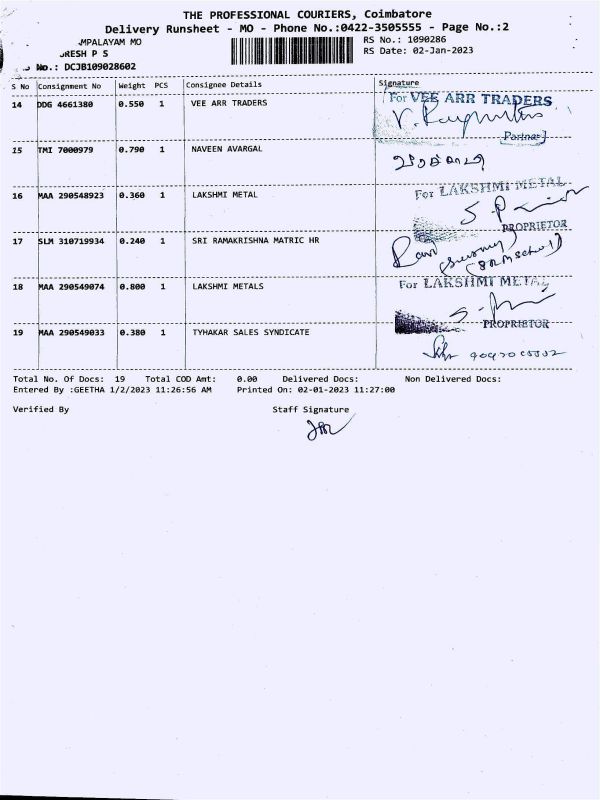 THE PROFESSIONAL COURIERS, Coimbatore
Delivery Runsheet - MO - Phone No.:0422-3505555 - Page No.:2
MPALAYAM MO
RS No.: 1090286
RESH P S
RS Date: 02-Jan-2023
No.: DCJB109028602
S No Consignment No Weight PCS Consignee Details Signature
14 DDG 4661380 0.550 1 VEE ARR TRADERS
For VEE ARR TRADERS
Partner
15 TMI 7000979 0.790 1 NAVEEN AVARGAL
16 MAA 290548923 0.360 1 LAKSHMI METAL
For LAKSHMI METAL
PROPRIETOR
17 SLM 310719934 0.240 1 SRI RAMAKRISHNA MATRIC HR
18 MAA 290549074 0.800 1 LAKSHMI METALS
For LAKSHMI METAL
PROPRIETOR
19 MAA 290549033 0.380 1 TYHAKAR SALES SYNDICATE
Total No. Of Docs: 19 Total COD Amt: 0.00 Delivered Docs: Non Delivered Docs:
Entered By :GEETHA 1/2/2023 11:26:56 AM Printed On: 02-01-2023 11:27:00
Verified By Staff Signature